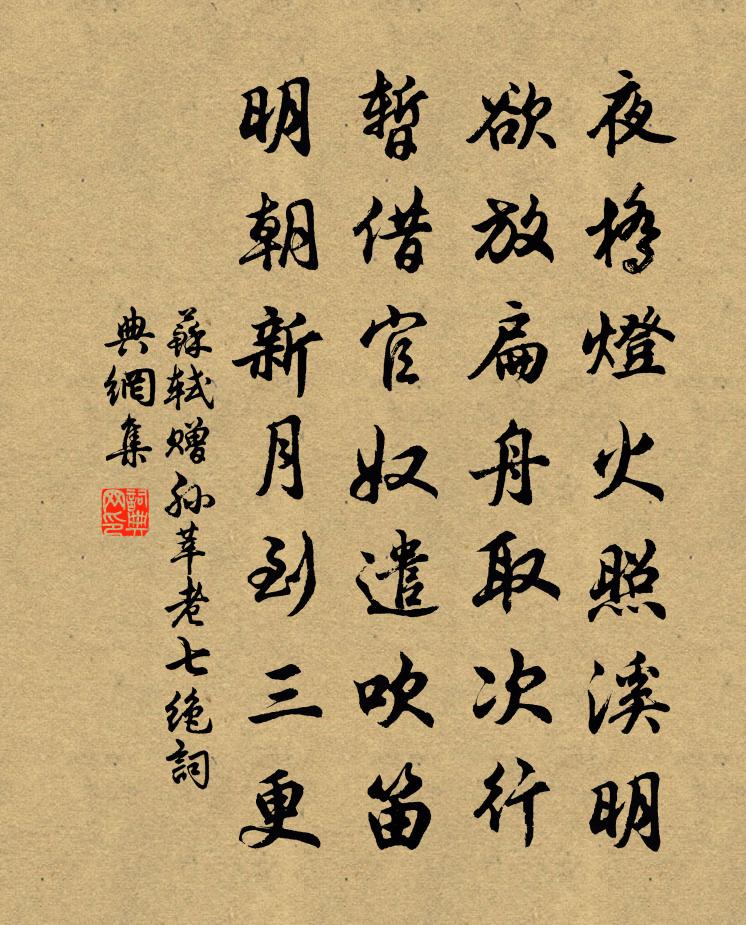 夜橋燈火照溪明
欲放扁舟取次行
暫借官奴遣吹笛
明朝新月到三更
蘇軾贈孫莘老七絶詞
典網集
詞典
网印